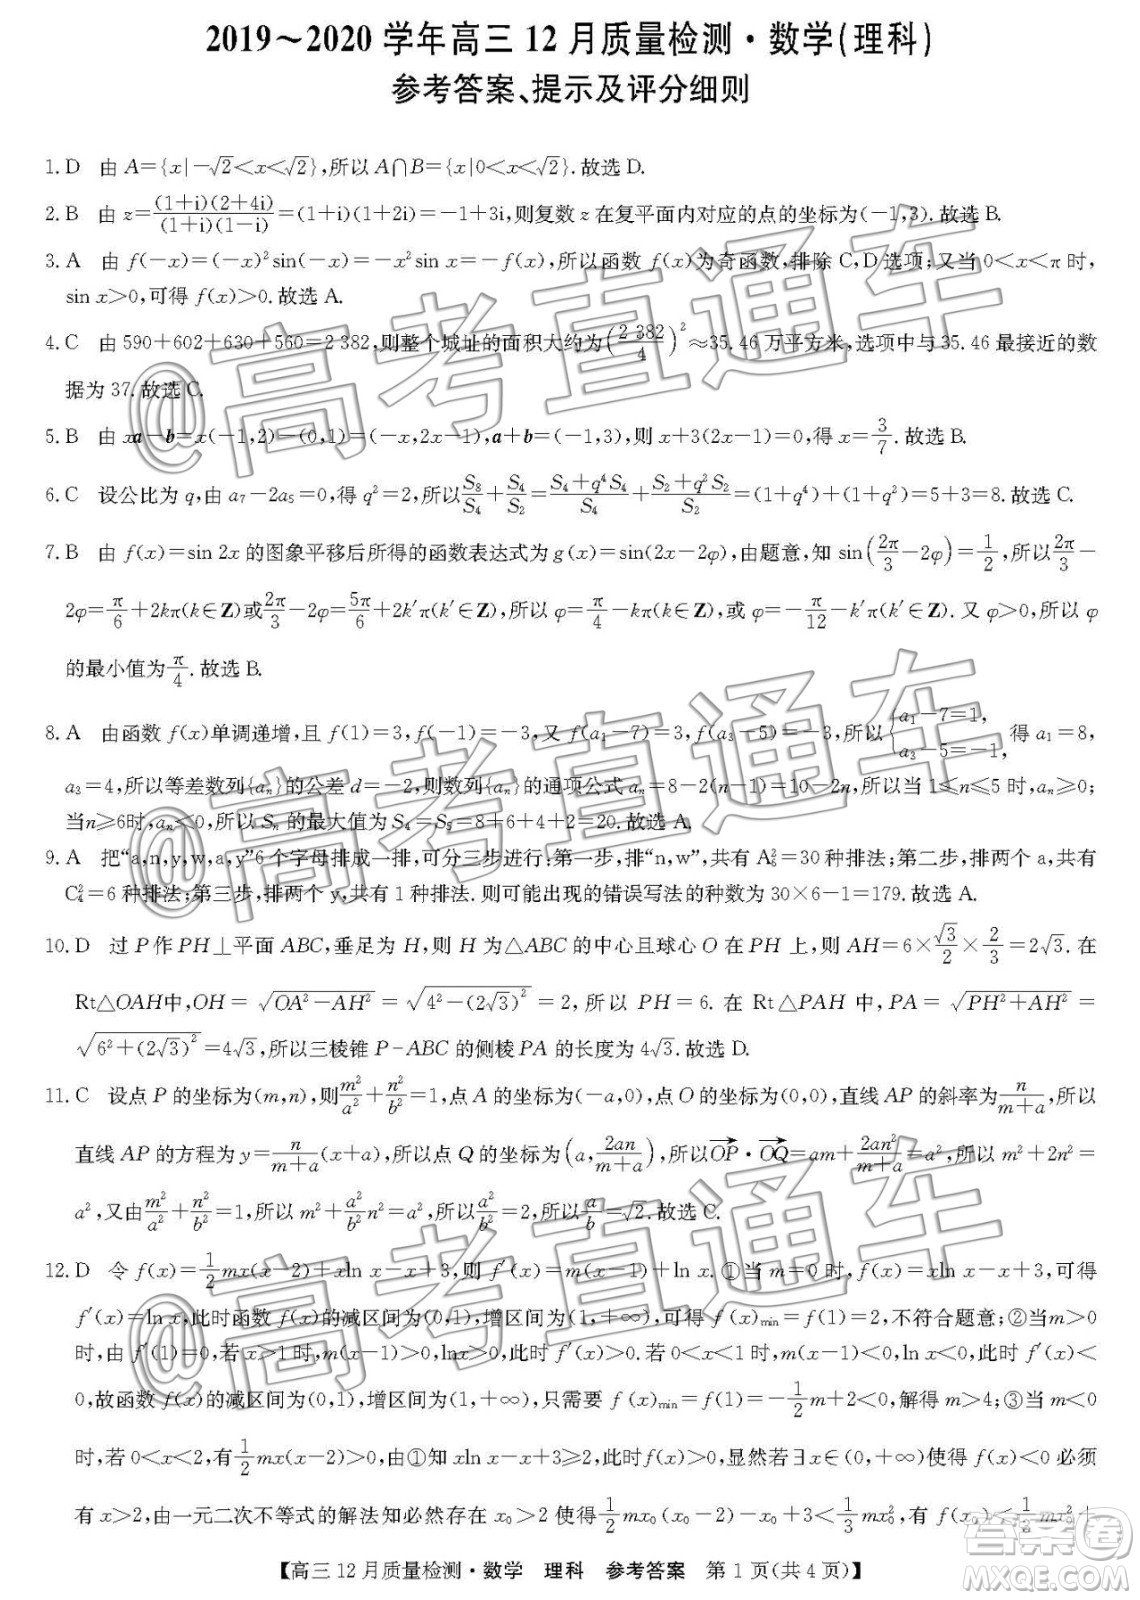 2019～2020 学年高三 12 月质量检测·数学(理科)
参考答案、提示及评分细则
1. D 由 A={x|-√2<x<√2},所以 A∩B={x|0<x<√2}.故选 D.
2. B 由 z=(1+i)(2+4i)/(1+i)(1-i)=(1+i)(1+2i)=-1+3i,则复数 z 在复平面内对应的点的坐标为(-1,3).故选 B.
3. A 由 f(-x)=(-x)²sin(-x)=-x²sin x=-f(x),所以函数 f(x)为奇函数,排除 C,D 选项;又当 0<x<π 时,
sin x>0,可得 f(x)>0.故选 A.
4. C 由 590+602+630+560=2 382,则整个城址的面积大约为(2 382/4)²≈35.46 万平方米,选项中与 35.46 最接近的数
据为 37.故选 C.
5. B 由 xa-b=x(-1,2)-(0,1)=(-x,2x-1),a+b=(-1,3),则 x+3(2x-1)=0,得 x=3/7.故选 B.
6. C 设公比为 q,由 a₇-2a₅=0,得 q²=2,所以 S₈/S₄+S₄/S₂=(S₄+q⁴S₄)/S₄+(S₂+q²S₂)/S₂=(1+q⁴)+(1+q²)=5+3=8.故选 C.
7. B 由 f(x)=sin 2x 的图象平移后所得的函数表达式为 g(x)=sin(2x-2φ),由题意,知 sin(2π/3-2φ)=1/2,所以 2π/3-
2φ=π/6+2kπ(k∈Z)或 2π/3-2φ=5π/6+2k′π(k′∈Z),所以 φ=π/4-kπ(k∈Z),或 φ=-π/12-k′π(k′∈Z).又 φ>0,所以 φ
的最小值为 π/4.故选 B.
8. A 由函数 f(x)单调递增,且 f(1)=3,f(-1)=-3,又 f(a₁-7)=3,f(a₃-5)=-3,所以{a₁-7=1, a₃-5=-1, 得 a₁=8,
a₃=4,所以等差数列{aₙ}的公差 d=-2,则数列{aₙ}的通项公式 aₙ=8-2(n-1)=10-2n,所以当 1≤n≤5 时,aₙ≥0;
当n≥6时,aₙ<0,所以 Sₙ 的最大值为 S₄=S₅=8+6+4+2=20.故选 A.
9. A 把“a,n,y,w,a,y”6 个字母排成一排,可分三步进行:第一步,排“n,w”,共有 A₆²=30 种排法;第二步,排两个 a,共有
C₄²=6 种排法;第三步,排两个 y,共有 1 种排法.则可能出现的错误写法的种数为 30×6-1=179.故选 A.
10. D 过 P 作 PH⊥平面 ABC,垂足为 H,则 H 为△ABC 的中心且球心 O 在 PH 上,则 AH=6×√3/2×2/3=2√3.在
Rt△OAH中,OH=√(OA²-AH²)=√(4²-(2√3)²)=2,所以 PH=6.在 Rt△PAH 中,PA=√(PH²+AH²)=
√(6²+(2√3)²)=4√3,所以三棱锥 P-ABC 的侧棱 PA 的长度为 4√3.故选 D.
11. C 设点 P 的坐标为(m,n),则 m²/a²+n²/b²=1,点 A 的坐标为(-a,0),点 O 的坐标为(0,0),直线 AP 的斜率为 n/(m+a),所以
直线 AP 的方程为 y=n/(m+a)(x+a),所以点 Q 的坐标为(a,2an/(m+a)),所以 OP·OQ=am+2an²/(m+a)=a²,所以 m²+2n²=
a²,又由 m²/a²+n²/b²=1,所以 m²+a²/b² n²=a²,所以 a²/b²=2,所以 a/b=√2.故选 C.
12. D 令 f(x)=1/2mx(x-2)+xln x-x+3,则 f′(x)=m(x-1)+ln x.①当 m=0 时,f(x)=xln x-x+3,可得
f′(x)=ln x,此时函数 f(x)的减区间为(0,1),增区间为(1,+∞),可得 f(x)min=f(1)=2,不符合题意;②当m>0
时,由 f′(1)=0,若 x>1 时,m(x-1)>0,ln x>0,可得 f′(x)>0.若 0<x<1 时,m(x-1)<0,ln x<0,可得 f′(x)<
0,故函数 f(x)的减区间为(0,1),增区间为(1,+∞),只需要 f(x)min=f(1)=-1/2m+2<0,解得 m>4;③当 m<0
时,若 0<x<2,有 1/2mx(x-2)>0,由①可知 xln x-x+3≥2,此时 f(x)>0,显然若∃x∈(0,+∞)使得 f(x)<0 必须
有 x>2,由一元二次不等式的解法知必然存在 x₀>2 使得 1/2mx₀(x₀-2)-x₀+3<1/3mx₀²,有 f(x₀)<1/3mx₀²+
【高三 12 月质量检测·数学 理科 参考答案 第 1 页(共 4 页)】
@高考直通车
@高考直通车
@高考直通车
答案圈